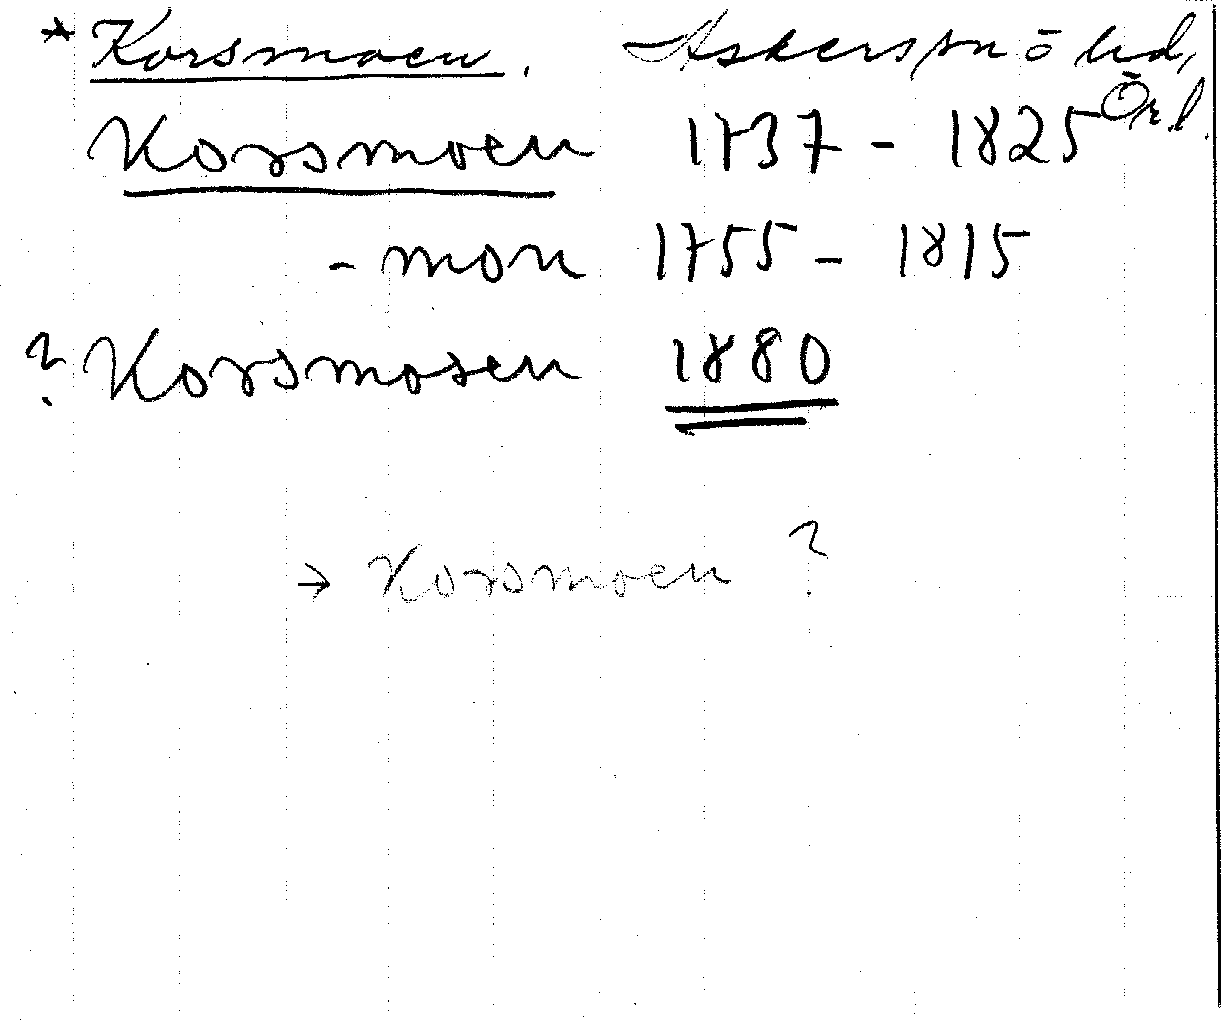 * Korsmoen. Askers sn ö hd,
Ör. l.
Korsmoen 1737 - 1825
- mon 1755 - 1815
? Korsmosen 1880
→ Korsmoen ?